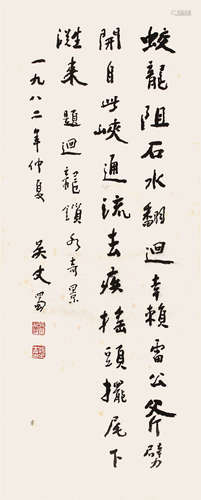 蛟龍阻石水翻迴幸賴雷公斧劈
開自此峽通流去疾搖頭擺尾下
灩來 題迴龍鎖水奇景
一九八二年仲夏
吳丈蜀